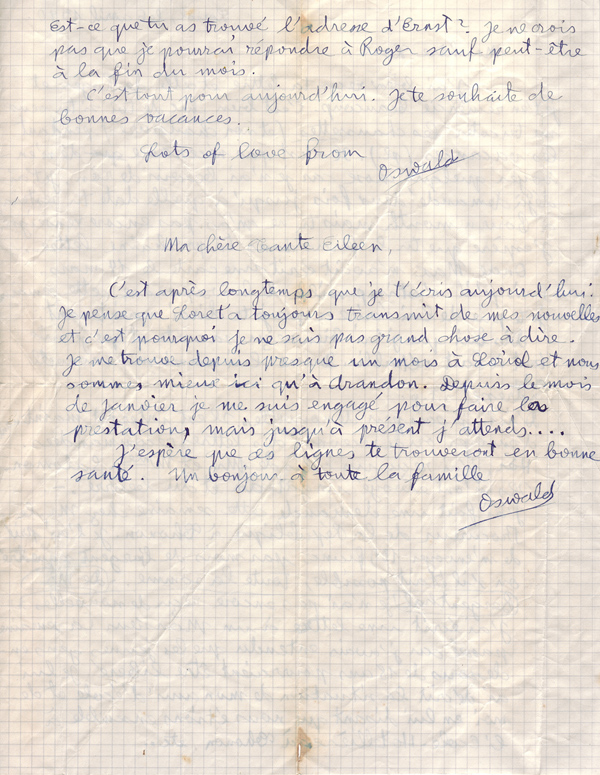 Est-ce que tu as trouvé l'adresse d'Ernst? Je ne crois
pas que je pourrai répondre à Roger sauf peut-être
à la fin du mois.
C'est tout pour aujourd'hui. Je te souhaite de
bonnes vacances.
Lots of love from
Oswald
Ma chère Tante Eileen,
C'est après longtemps que je t'écris aujourd'hui.
Je pense que Lore t'a toujours transmit de mes nouvelles
et c'est pourquoi je ne sais pas grand chose à dire.
Je me trouve depuis presque un mois à Loriol et nous
sommes mieux ici qu'à Arandon. Depuis le mois
de Janvier je me suis engagé pour faire les
prestation, mais jusqu'à présent j'attends....
J'espère que ces lignes te trouveront en bonne
santé. Un bonjour à toute la famille
Oswald